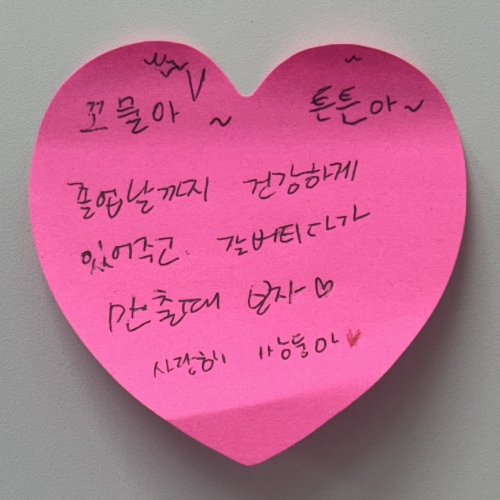 꼬물아 ~ 튼튼아~
졸업날까지 건강하게
있어주고. 잘버티다가
만출때 보자♡
사랑해 쌍둥아♥